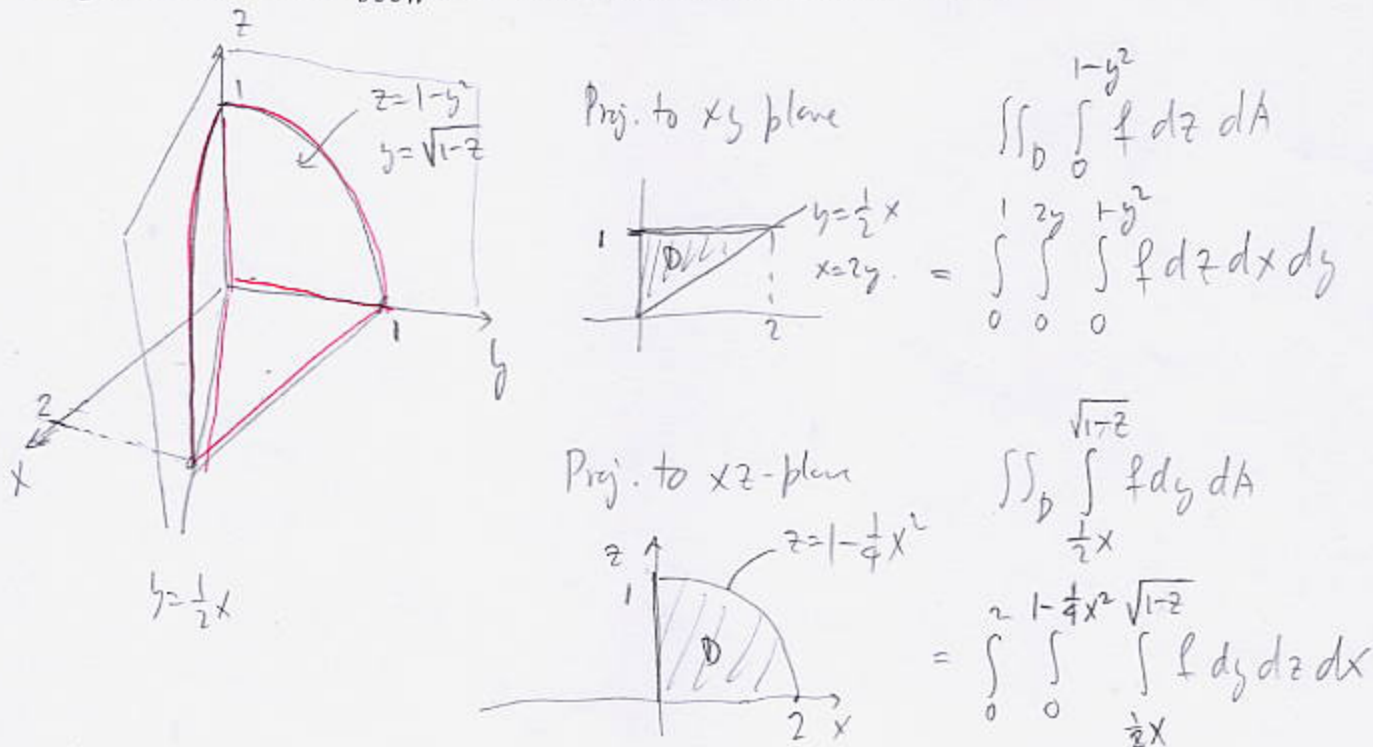 z
1
z=1-y²
y=√(1-z)
1
y
2
x
y=½x
Proj. to xy plane
1
D
y=½x
x=2y.
2
∫∫_D ∫_0^{1-y²} f dz dA
= ∫_0^1 ∫_0^{2y} ∫_0^{1-y²} f dz dx dy
Proj. to xz-plane
z
1
z=1-¼x²
D
2
x
∫∫_D ∫_{½x}^{√(1-z)} f dy dA
= ∫_0^2 ∫_0^{1-¼x²} ∫_{½x}^{√(1-z)} f dy dz dx